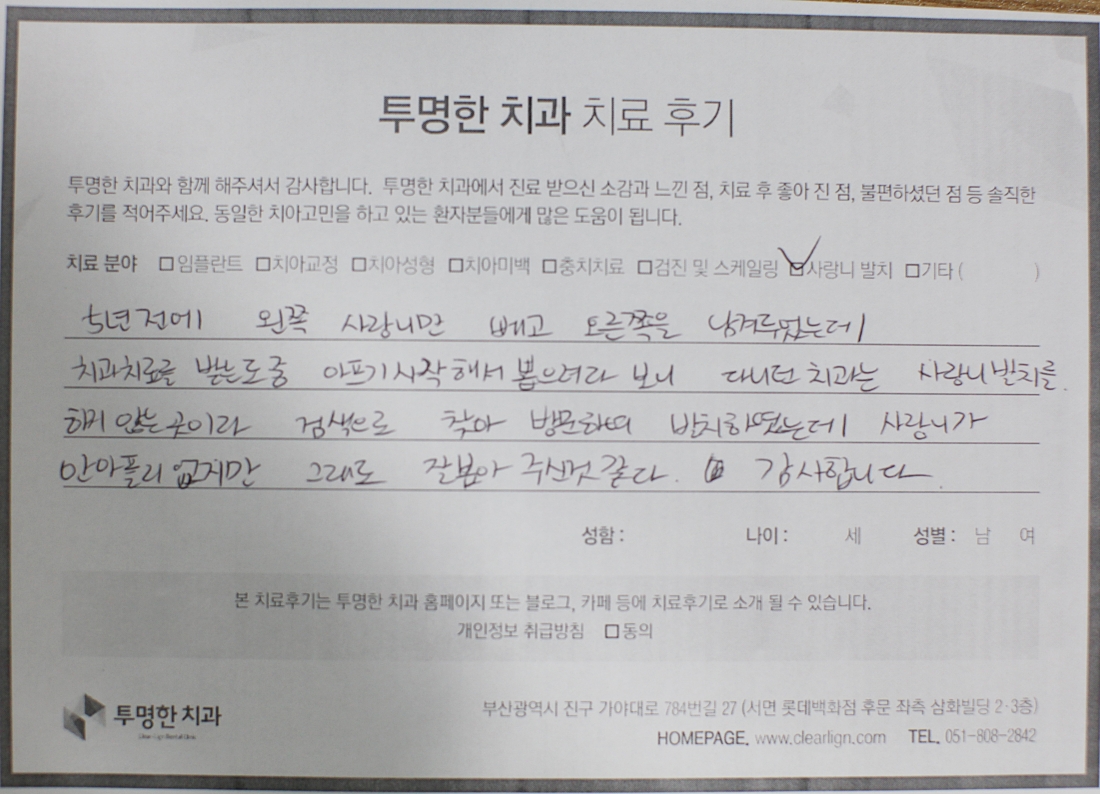 투명한 치과 치료 후기
투명한 치과와 함께 해주셔서 감사합니다. 투명한 치과에서 진료 받으신 소감과 느낀 점, 치료 후 좋아 진 점, 불편하셨던 점 등 솔직한
후기를 적어주세요. 동일한 치아고민을 하고 있는 환자분들에게 많은 도움이 됩니다.
치료 분야 □임플란트 □치아교정 □치아성형 □치아미백 □충치치료 □검진 및 스케일링 ☑사랑니 발치 □기타 ( )
5년전에 왼쪽 사랑니만 빼고 오른쪽을 남겨두었는데
치과치료를 받는도중 아프기시작해서 뽑으려라 보니 다니던 치과는 사랑니발치를
하지 않는곳이라 검색으로 찾아 방문하여 발치하였는데 사랑니가
안아플리 없지만 그래도 잘봅아 주신것 같다. 감사합니다.
성함 : 나이 : 세 성별 : 남 여
본 치료후기는 투명한 치과 홈페이지 또는 블로그, 카페 등에 치료후기로 소개 될 수 있습니다.
개인정보 취급방침 □동의
투명한 치과
부산광역시 진구 가야대로 784번길 27 (서면 롯데백화점 후문 좌측 삼화빌딩 2-3층)
HOMEPAGE. www.clearlign.com TEL. 051-808-2842